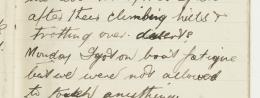 after their climbing hills &
trotting over deserts
Monday I got on boat fatigue
but we were not allowed
to touch anything